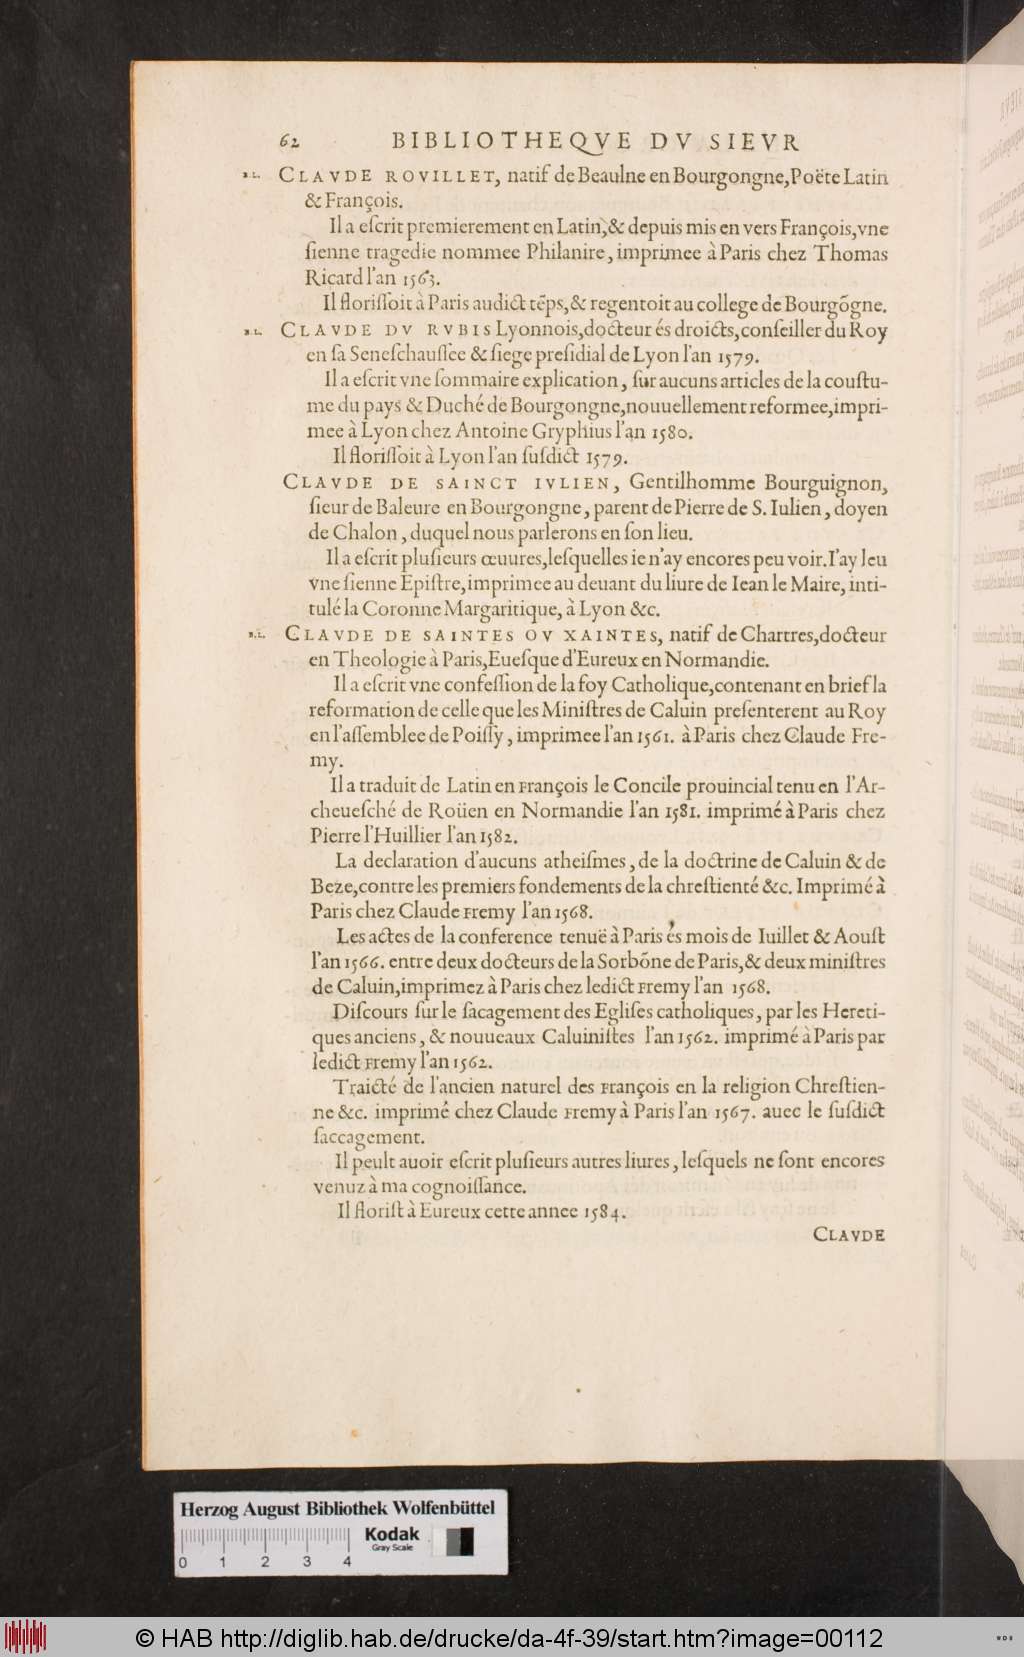 62 BIBLIOTHEQVE DV SIEVR
B.L. CLAVDE ROVILLET, natif de Beaulne en Bourgongne, Poëte Latin
& François.
Il a eſcrit premierement en Latin, & depuis mis en vers François, vne
ſienne tragedie nommee Philanire, imprimee à Paris chez Thomas
Ricard l'an 1563.
Il floriſſoit à Paris audict tẽps, & regentoit au college de Bourgõgne.
B.L. CLAVDE DV RVBIS Lyonnois, docteur és droicts, conſeiller du Roy
en ſa Seneſchauſſee & ſiege preſidial de Lyon l'an 1579.
Il a eſcrit vne ſommaire explication, ſur aucuns articles de la couſtu-
me du pays & Duché de Bourgongne, nouuellement reformee, impri-
mee à Lyon chez Antoine Gryphius l'an 1580.
Il floriſſoit à Lyon l'an ſuſdict 1579.
CLAVDE DE SAINCT IVLIEN, Gentilhomme Bourguignon,
ſieur de Baleure en Bourgongne, parent de Pierre de S. Iulien, doyen
de Chalon, duquel nous parlerons en ſon lieu.
Il a eſcrit pluſieurs œuures, leſquelles ie n'ay encores peu voir. I'ay leu
vne ſienne Epiſtre, imprimee au deuant du liure de Iean le Maire, inti-
tulé la Coronne Margaritique, à Lyon &c.
B.L. CLAVDE DE SAINTES OV XAINTES, natif de Chartres, docteur
en Theologie à Paris, Eueſque d'Eureux en Normandie.
Il a eſcrit vne confeſſion de la foy Catholique, contenant en brief la
reformation de celle que les Miniſtres de Caluin preſenterent au Roy
en l'aſſemblee de Poiſſy, imprimee l'an 1561. à Paris chez Claude Fre-
my.
Il a traduit de Latin en François le Concile prouincial tenu en l'Ar-
cheueſché de Roüen en Normandie l'an 1581. imprimé à Paris chez
Pierre l'Huillier l'an 1582.
La declaration d'aucuns atheiſmes, de la doctrine de Caluin & de
Beze, contre les premiers fondements de la chreſtienté &c. Imprimé à
Paris chez Claude Fremy l'an 1568.
Les actes de la conference tenuë à Paris és mois de Iuillet & Aouſt
l'an 1566. entre deux docteurs de la Sorbõne de Paris, & deux miniſtres
de Caluin, imprimez à Paris chez ledict Fremy l'an 1568.
Diſcours ſur le ſacagement des Egliſes catholiques, par les Hereti-
ques anciens, & nouueaux Caluiniſtes l'an 1562. imprimé à Paris par
ledict Fremy l'an 1562.
Traicté de l'ancien naturel des François en la religion Chreſtien-
ne &c. imprimé chez Claude Fremy à Paris l'an 1567. auec le ſuſdict
ſaccagement.
Il peult auoir eſcrit pluſieurs autres liures, leſquels ne ſont encores
venuz à ma cognoiſſance.
Il floriſt à Eureux cette annee 1584.
CLAVDE
Herzog August Bibliothek Wolfenbüttel
Kodak
Gray Scale
0 1 2 3 4
© HAB http://diglib.hab.de/drucke/da-4f-39/start.htm?image=00112